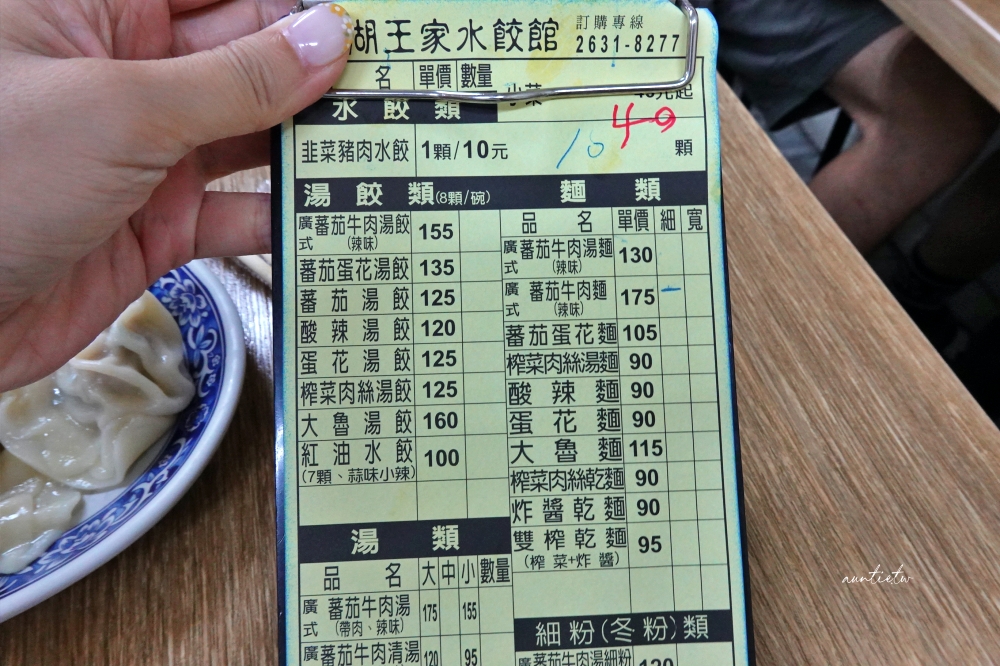 湖王家水餃館
訂購專線
2631-8277
名 單價 數量
小菜 元起
水餃類
40
韭菜豬肉水餃 1顆/10元 10 顆
湯餃類(8顆/碗)
廣式 蕃茄牛肉湯餃(辣味) 155
蕃茄蛋花湯餃 135
蕃茄湯餃 125
酸辣湯餃 120
蛋花湯餃 125
榨菜肉絲湯餃 125
大魯湯餃 160
紅油水餃 100
(7顆、蒜味小辣)
湯類
品名 大 中 小 數量
廣式 蕃茄牛肉湯(帶肉、辣味) 175 155
廣 蕃茄牛肉清湯 120 95
麵類
品名 單價 細 寬
廣式 蕃茄牛肉湯麵(辣味) 130
廣式 蕃茄牛肉麵(辣味) 175
蕃茄蛋花麵 105
榨菜肉絲湯麵 90
酸辣麵 90
蛋花麵 90
大魯麵 115
榨菜肉絲乾麵 90
炸醬乾麵 90
雙榨乾麵 95
(榨菜+炸醬)
細粉(冬粉)類
廣 蕃茄牛肉湯細粉 130
auntietw